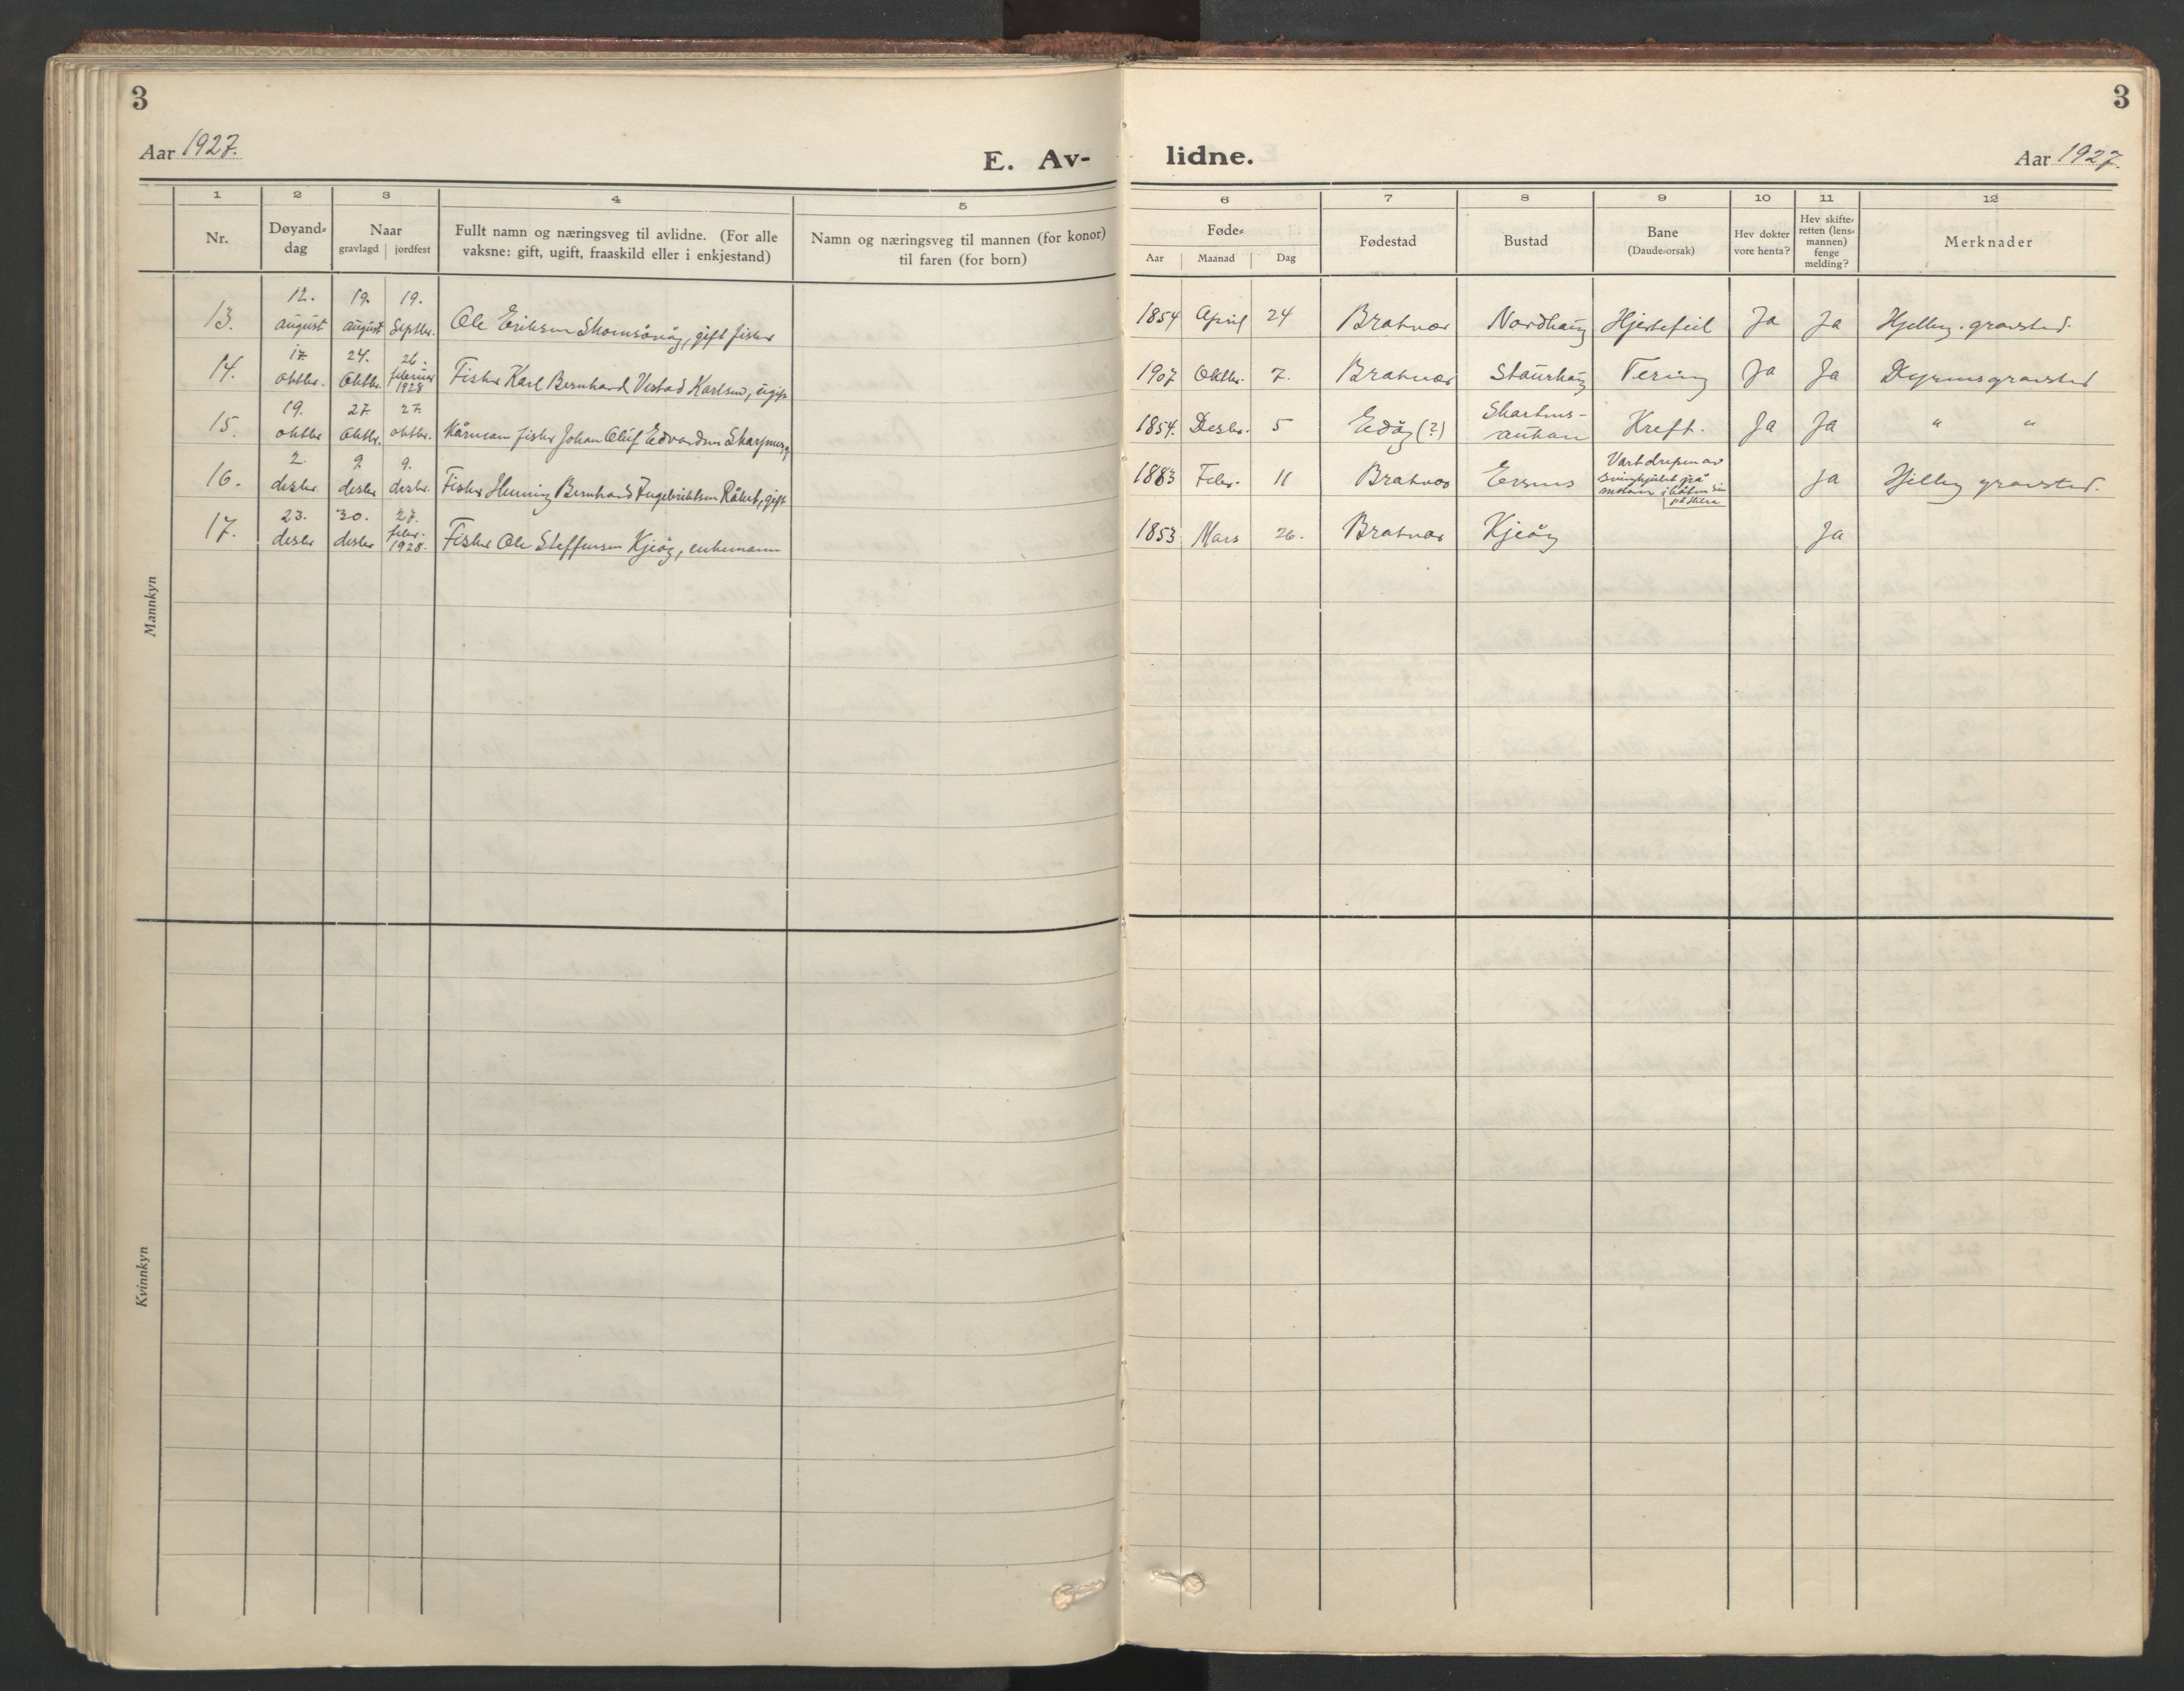 3
3
Aar 1927.
E. Av-
lidne.
Aar 1927.
1 2 3 4 5 6 7 8 9 10 11 12
Nr.
Døyand-
dag
Naar
gravlagd | jordfest
Fullt namn og næringsveg til avlidne. (For alle
vaksne: gift, ugift, fraaskild eller i enkjestand)
Namn og næringsveg til mannen (for konor)
til faren (for born)
Føde-
Aar Maanad Dag
Fødestad
Bustad
Bane
(Daude-orsak)
Hev dokter
vore henta?
Hev skifte-
retten (lens-
mannen)
fenge
melding?
Merknader
Mannkyn
12. 19. 19.
13. august august Septbr. Ole Eriksen, gift fisker 1854 April 24 Bratvær Nordhaug Hjertefeil Ja Ja gravsted.
17. 24. 26.
14. oktbr. Oktbr. februar Fisker Karl Bernhard Vestad Karlsen, ugift 1907 Oktbr. 7. Bratvær Staurhaug Tering Ja Ja gravsted
1928
19. 27. 27.
15. oktbr Oktbr. oktbr. Kårmann fisker Johan Oluf Edvardsen 1854. Desbr. 5 Edøy (?) Kreft. Ja Ja " "
2. 9. 9.
16. desbr desbr desbr. Fisker Henning Bernhard Ingebriktsen Råket, gift 1883 Febr. 11 Bratvær Ersnes Vart drepen av
svinghjulet på
motoren i båten sin
på Hitra
Ja gravsted.
23. 30. 27.
17. desbr desbr febr. Fisker Ole Steffensen Kjeøy, enkemann 1853 Mars 26. Bratvær Kjeøy Ja
1928.
Kvinnkyn